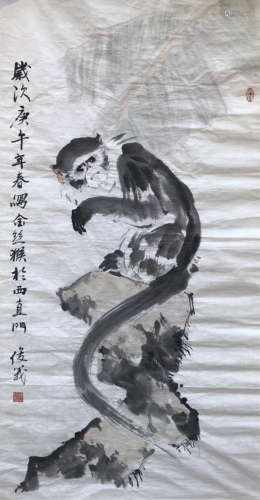 歲次庚午年春寫金丝猴於西直門
俊義